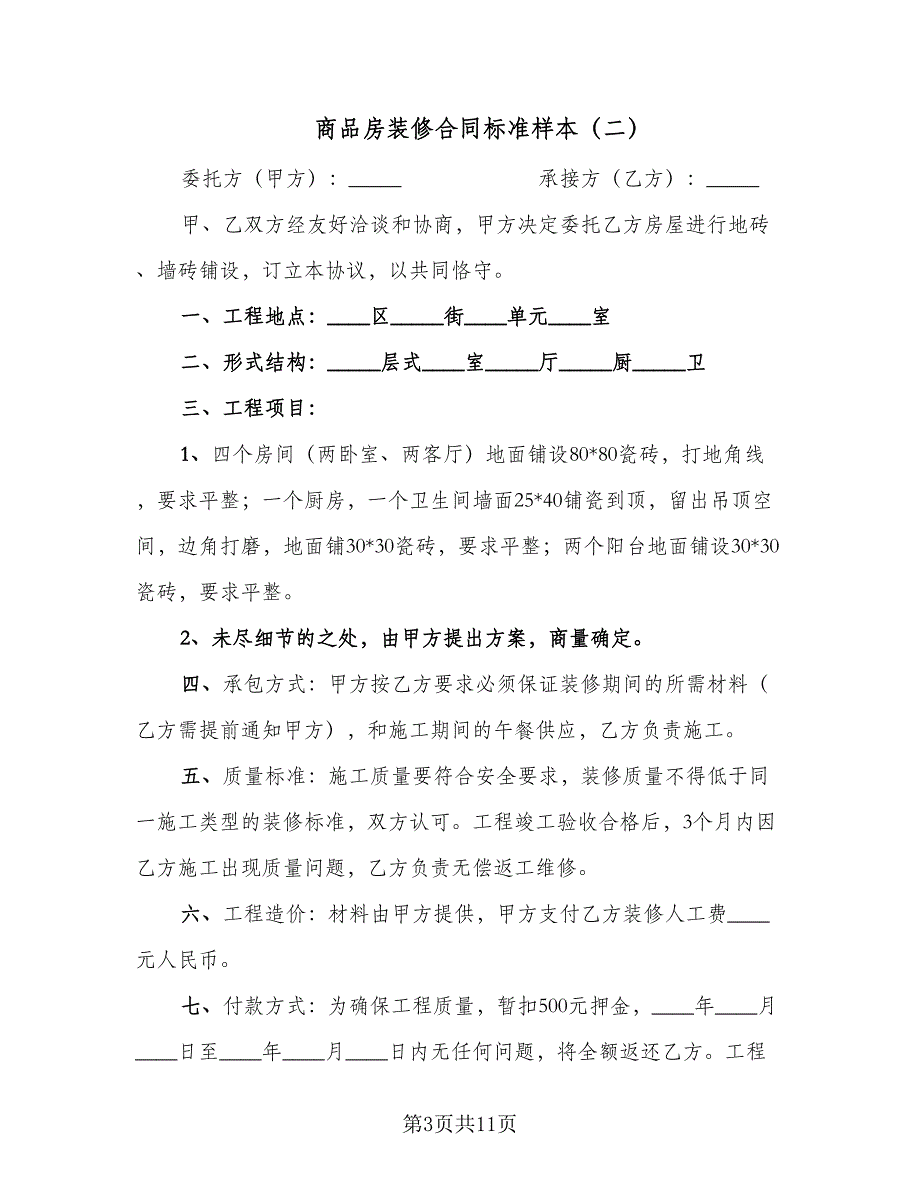 商品房装修合同标准样本（二）
委托方（甲方）：_____ 承接方（乙方）：_____
甲、乙双方经友好洽谈和协商，甲方决定委托乙方房屋进行地砖
、墙砖铺设，订立本协议，以共同恪守。
一、工程地点：____区_____街____单元____室
二、形式结构：_____层式____室_____厅_____厨_____卫
三、工程项目：
1、四个房间（两卧室、两客厅）地面铺设80*80瓷砖，打地角线
，要求平整；一个厨房，一个卫生间墙面25*40铺瓷到顶，留出吊顶空
间，边角打磨，地面铺30*30瓷砖，要求平整；两个阳台地面铺设30*30
瓷砖，要求平整。
2、未尽细节的之处，由甲方提出方案，商量确定。
四、承包方式：甲方按乙方要求必须保证装修期间的所需材料（
乙方需提前通知甲方），和施工期间的午餐供应，乙方负责施工。
五、质量标准：施工质量要符合安全要求，装修质量不得低于同
一施工类型的装修标准，双方认可。工程竣工验收合格后，3个月内因
乙方施工出现质量问题，乙方负责无偿返工维修。
六、工程造价：材料由甲方提供，甲方支付乙方装修人工费____
元人民币。
七、付款方式：为确保工程质量，暂扣500元押金，____年____月
____日至____年____月____日内无任何问题，将全额返还乙方。工程
第3页共11页